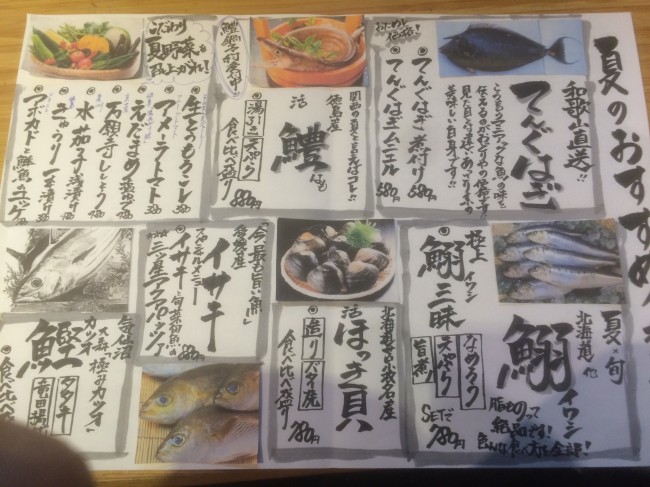 夏のおすすめ
和歌山直送!!
てんぐはぎ
美味しい白身です!!
てんぐはぎ 煮付け 680円
てんぐはぎ ムニエル 680円
関西の夏と言えばコレ!!
徳島産
活 鱧 はも
湯引き 天ぷら
食べ比べ盛り 880円
こだわり
夏野菜を
召し上がれ!
生とうもろこし
アメーラトマト
えだまめ
万願寺しとう
水茄子浅漬け
きゅうり一本漬け
アボカドと鮮魚ユッケ
夏の旬
北海道他
鰯 イワシ
脂ものって
絶品です!
極上 イワシ
鰯三昧
なめろう
天ぷら
旨煮
SETで
780円
北海道苫小牧名産
活 ほっき貝
造り バター焼
食べ比べ盛り 780円
「今最も旨い魚」
愛媛産
イサキ
スペシャルメニュー
イサキと旬菜初魚の
三ツ星アクアパッツァ
気仙沼
大トロ「極みカツオ」
カツオ
鰹
タタキ
竜田揚げ
食べ比べ盛り